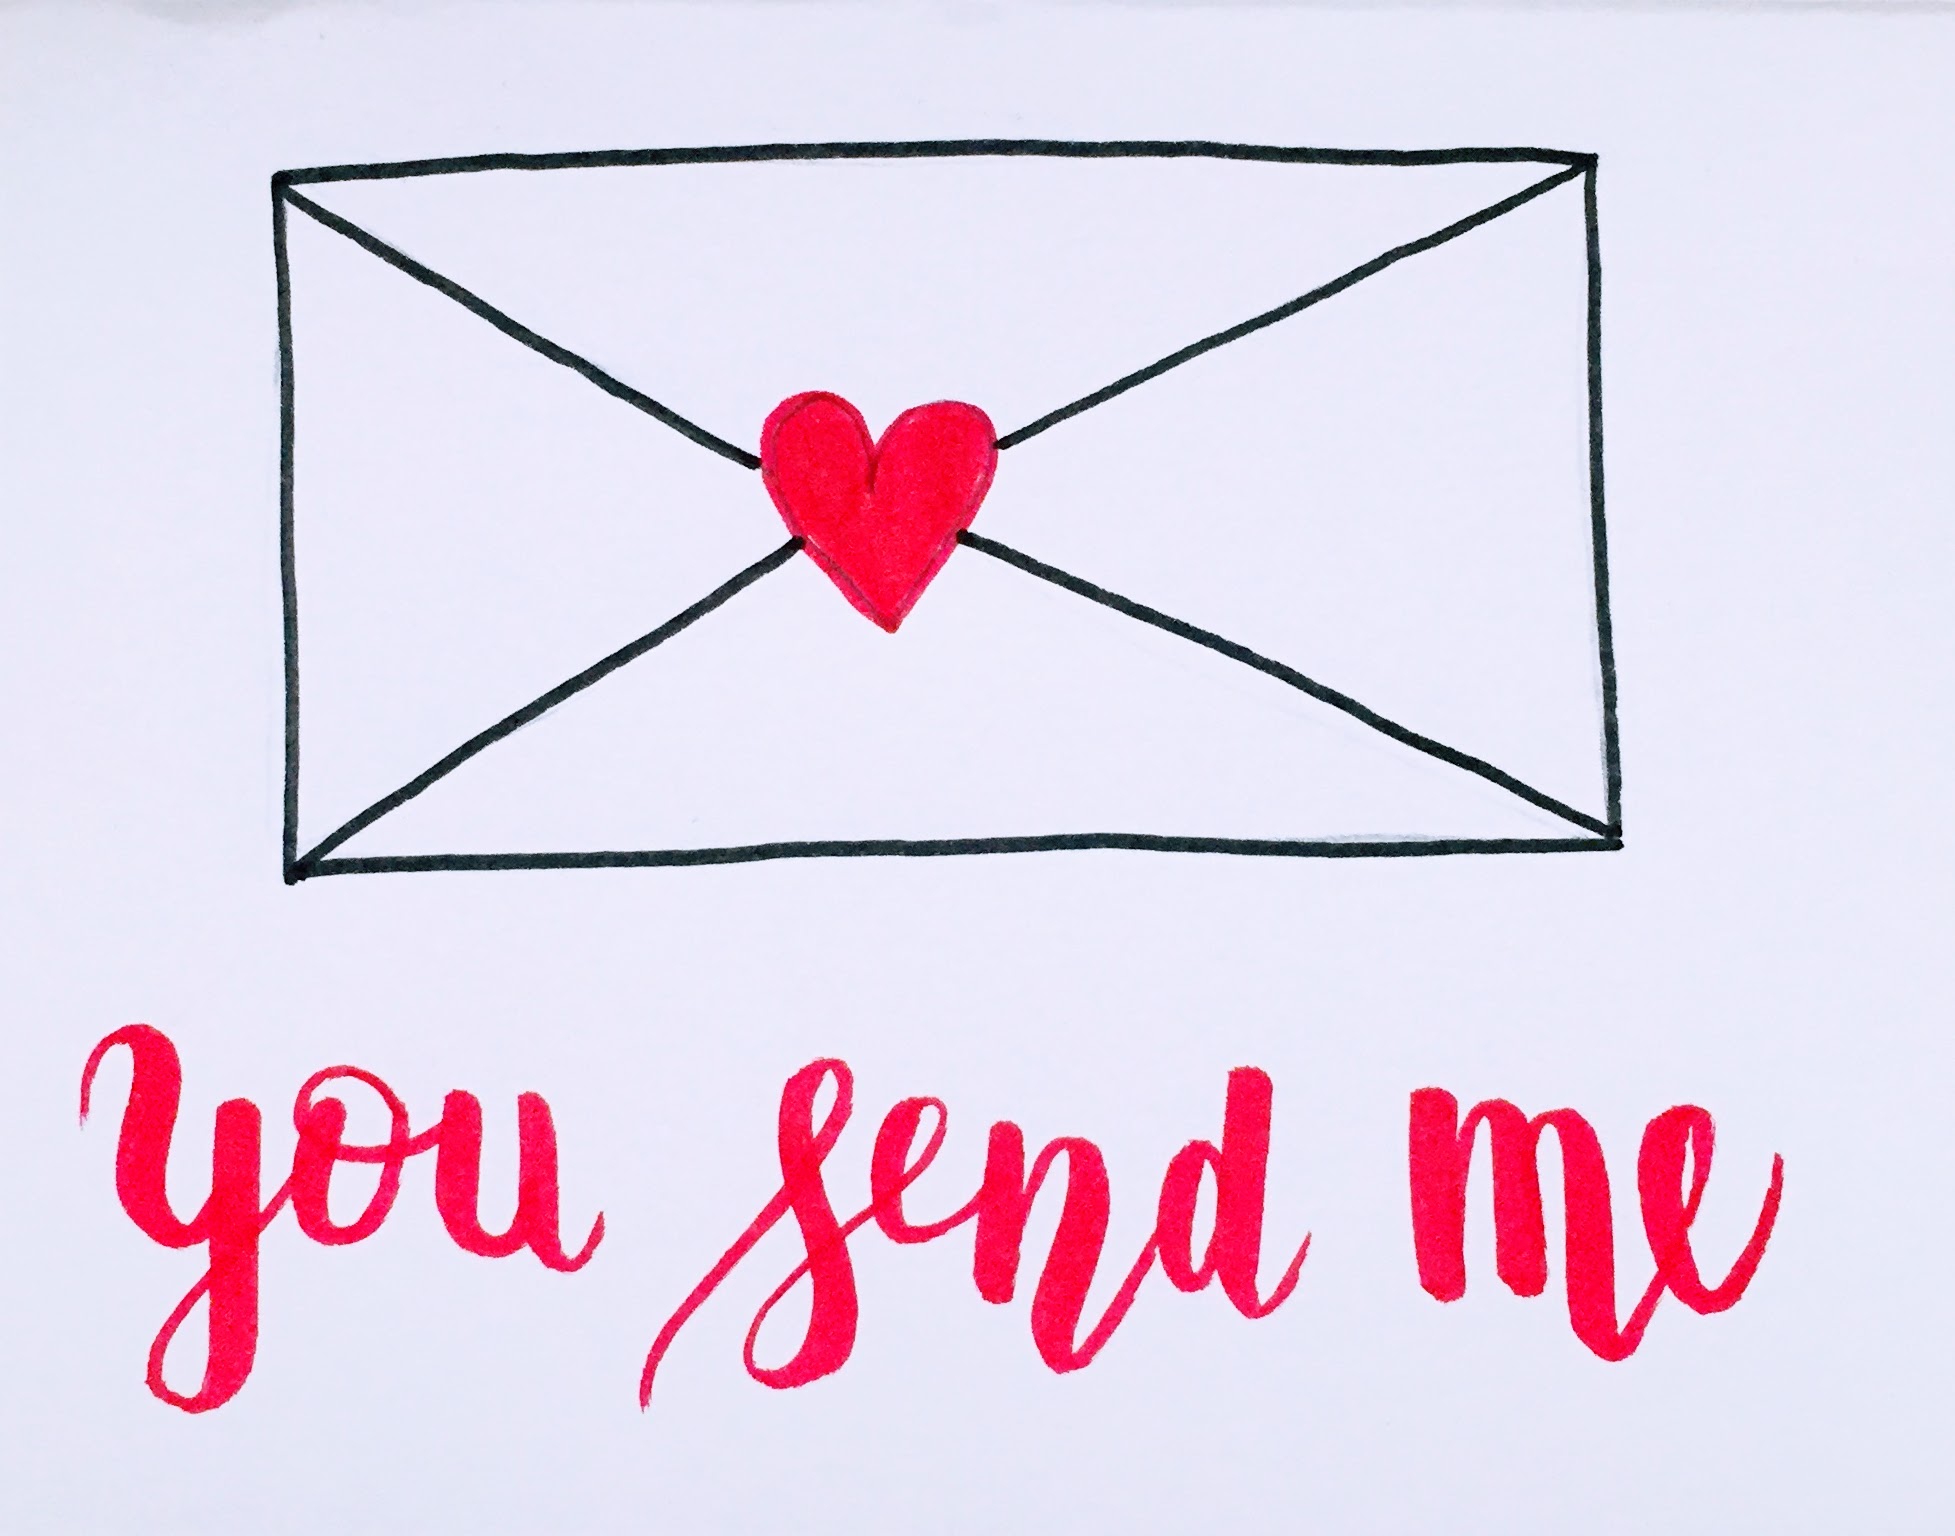 you send me